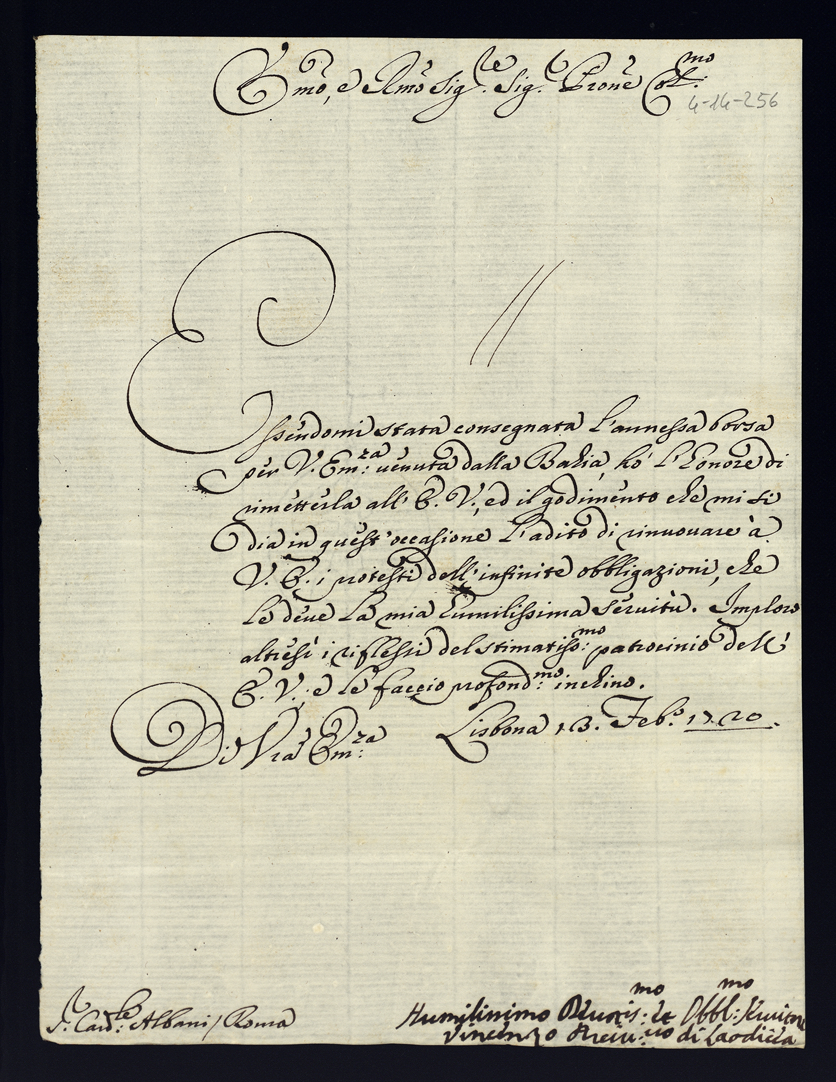 Em̃o, e Rm̃o Sig.re Sig.r Prone Col.mo
4-14-256
Essendomi stata consegnata l'annessa borsa
per V. Em:za venuta dalla Bahia, hò l'honore di
rimetterla all' E. V., ed il godimento che mi si
dia in quest'occasione l'adito di rinnovare à
V. E. i protesti dell'infinite obbligazioni, che
le deve la mia humilissima servitù. Imploro
altresì i riflessi del stimatiss:mo patrocinio dell'
E. V., e le faccio profond:mo inchino.
Di Vrà Em:za Lisbona 13. Feb.o 1720.
S.r Card:le Albani / Roma
Humilissimo Divotis:mo et Obbl:mo Servitore
Vincenzo Arciv:vo di Laodicea